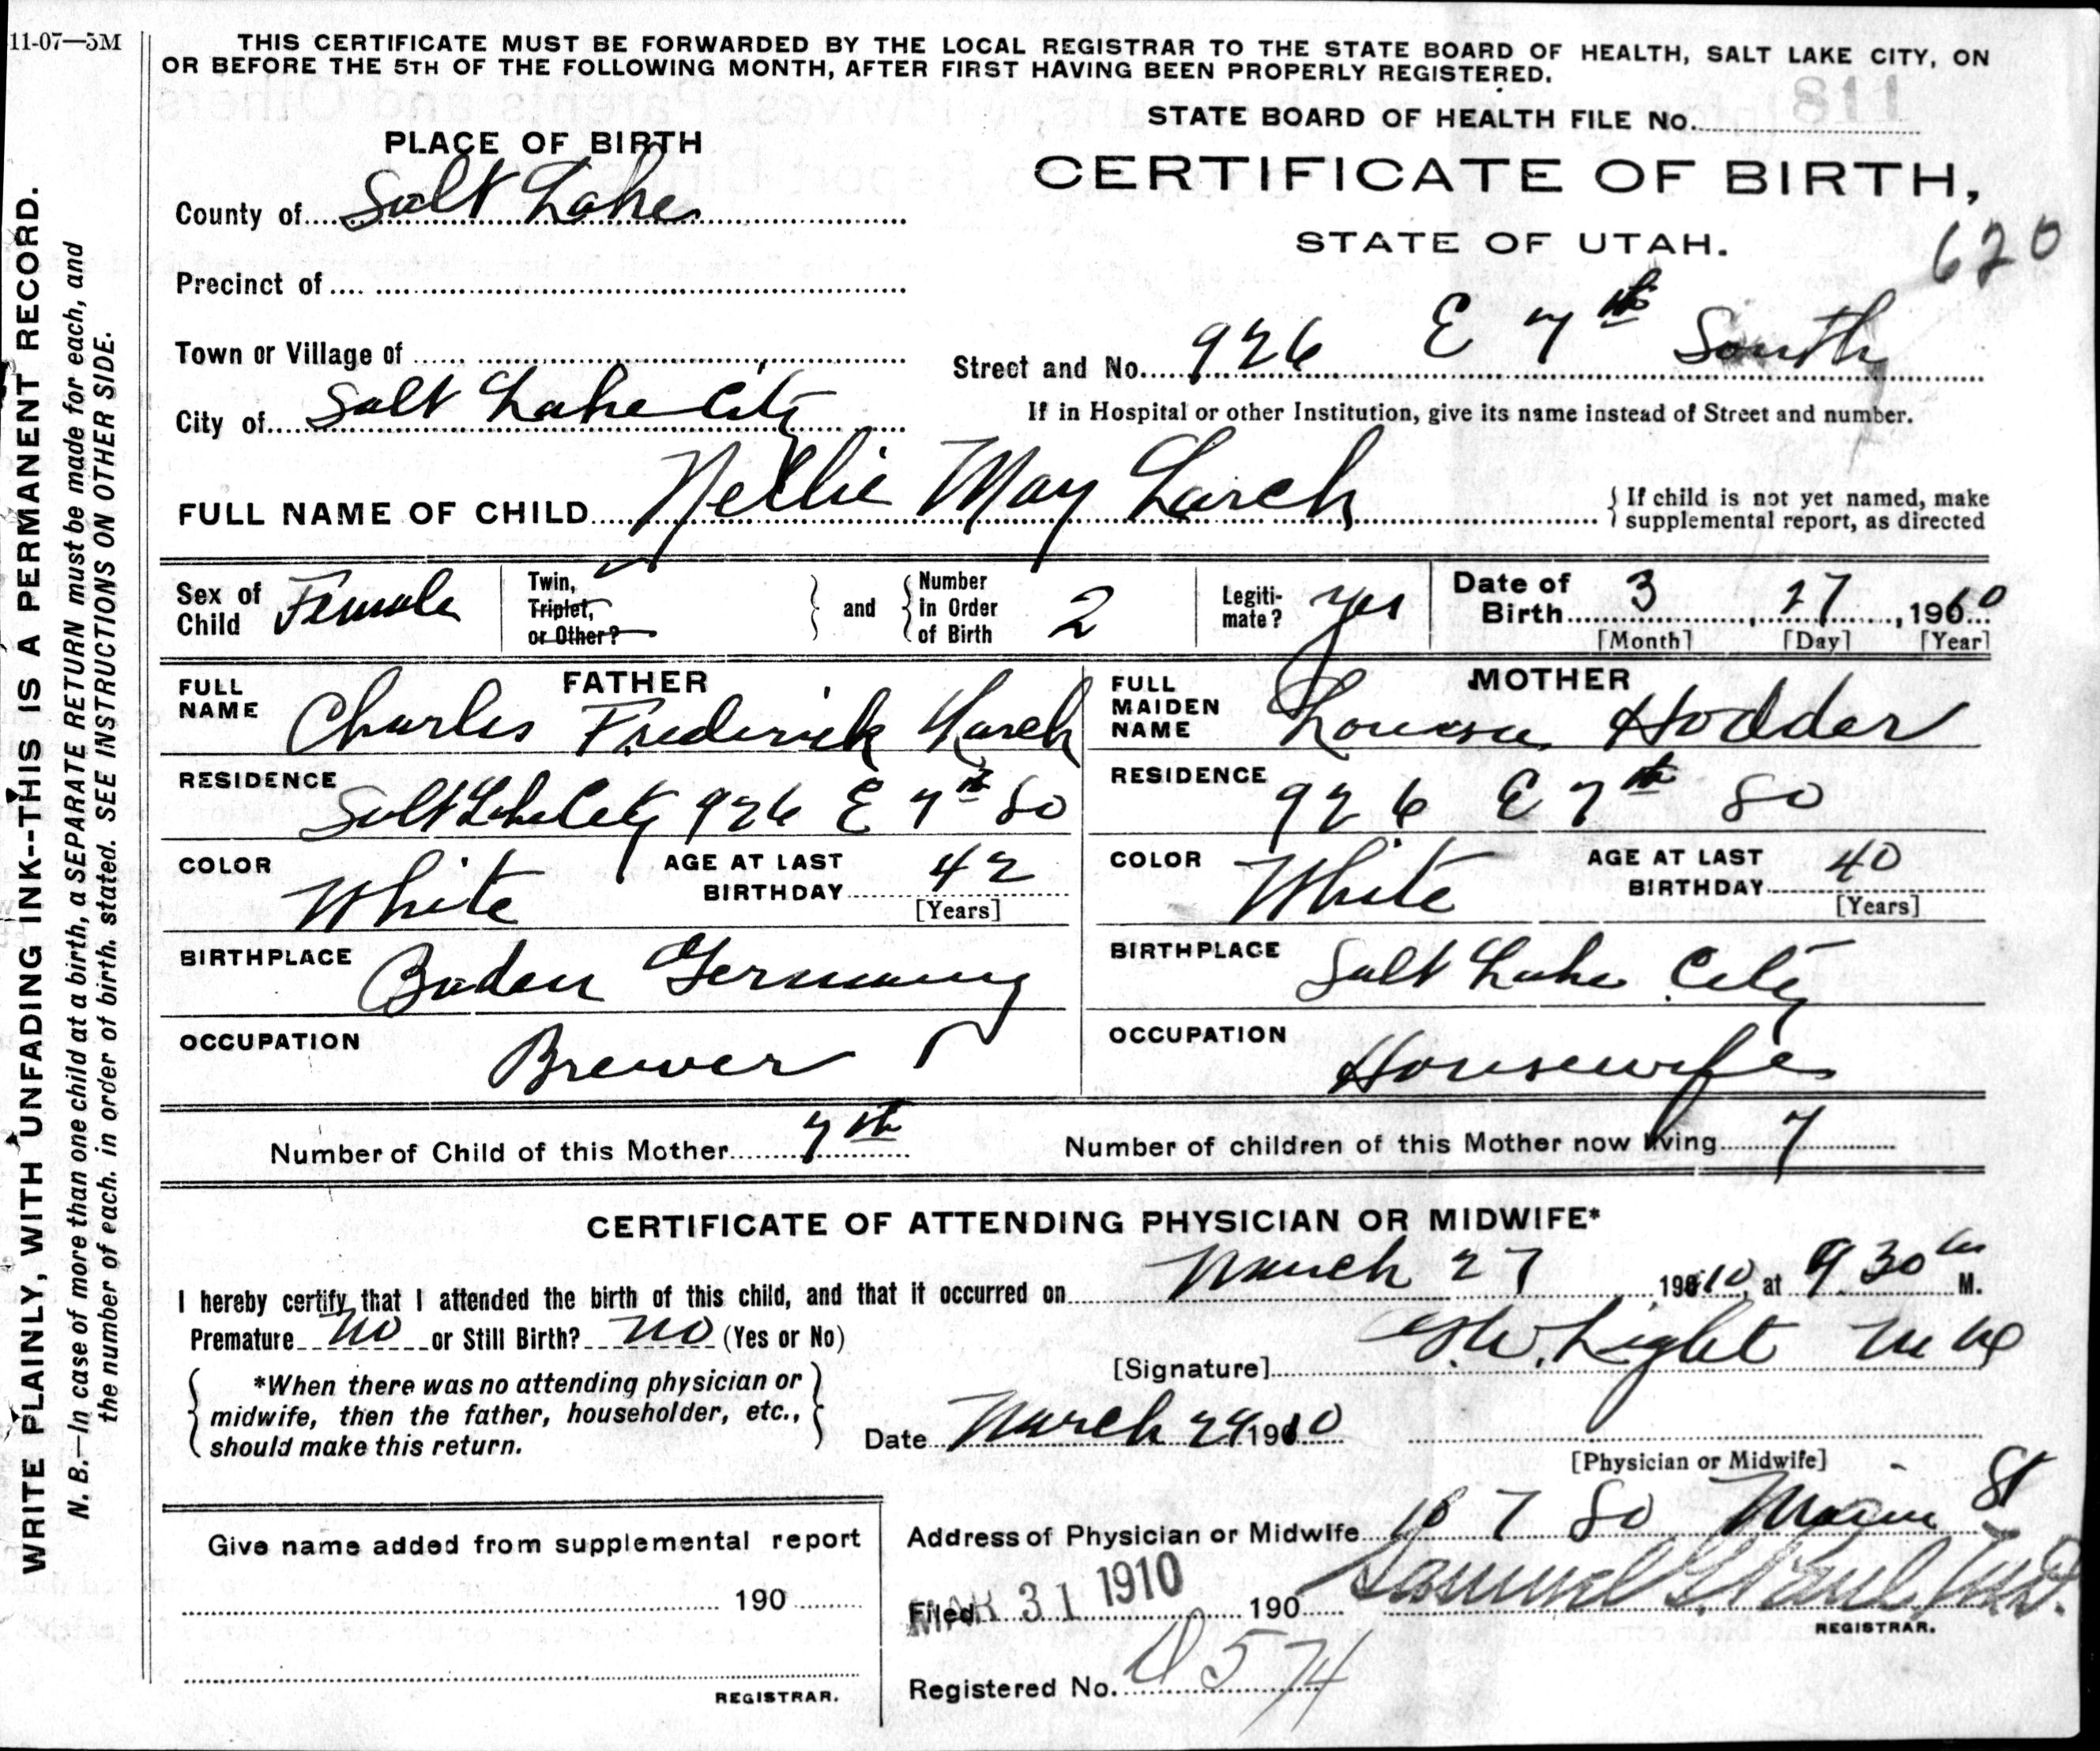 11-07—5M
THIS CERTIFICATE MUST BE FORWARDED BY THE LOCAL REGISTRAR TO THE STATE BOARD OF HEALTH, SALT LAKE CITY, ON
OR BEFORE THE 5TH OF THE FOLLOWING MONTH, AFTER FIRST HAVING BEEN PROPERLY REGISTERED.
STATE BOARD OF HEALTH FILE No. 811
PLACE OF BIRTH
CERTIFICATE OF BIRTH,
STATE OF UTAH.
620
County of Salt Lake
Precinct of
Town or Village of
Street and No. 926 E 7th South
City of Salt Lake City
If in Hospital or other Institution, give its name instead of Street and number.
FULL NAME OF CHILD Nellie May Larch
If child is not yet named, make
supplemental report, as directed
Sex of Child Female
Twin,
Triplet,
or Other?
and
Number in Order of Birth 2
Legitimate? yes
Date of Birth 3 27, 1910
[Month] [Day] [Year]
FATHER
FULL NAME Charles Frederick Larch
RESIDENCE Salt Lake City 926 E 7th So
COLOR White
AGE AT LAST BIRTHDAY 42
[Years]
BIRTHPLACE Baden Germany
OCCUPATION Brewer
MOTHER
FULL MAIDEN NAME Hodder
RESIDENCE 926 E 7th So
COLOR White
AGE AT LAST BIRTHDAY 40
[Years]
BIRTHPLACE Salt Lake City
OCCUPATION Housewife
Number of Child of this Mother 7th
Number of children of this Mother now living 7
CERTIFICATE OF ATTENDING PHYSICIAN OR MIDWIFE*
I hereby certify that I attended the birth of this child, and that it occurred on March 27 1910, at 9 30 M.
Premature no or Still Birth? no (Yes or No)
[Signature] Light
*When there was no attending physician or
midwife, then the father, householder, etc.,
should make this return.
Date March 29 1910
[Physician or Midwife]
Address of Physician or Midwife So Main St
Give name added from supplemental report
190
REGISTRAR.
Filed MAR 31 1910 190 Samuel G. Paul, M.D.
REGISTRAR.
Registered No. D574
WRITE PLAINLY, WITH UNFADING INK--THIS IS A PERMANENT RECORD.
N. B.—In case of more than one child at a birth, a SEPARATE RETURN must be made for each, and
the number of each. in order of birth. stated. SEE INSTRUCTIONS ON OTHER SIDE.